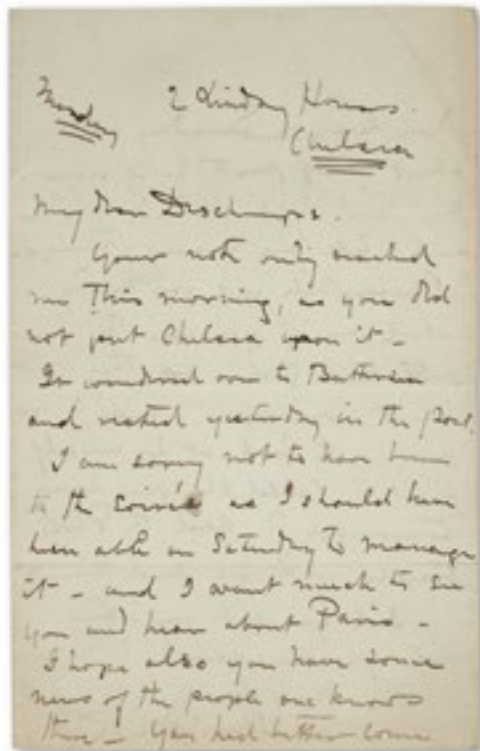 Monday
2 Lindsey Houses.
Chelsea
My dear Deschamps.
Your note only reached
me this morning, as you did
not put Chelsea upon it -
It wandered over to Battersea
and rested yesterday in the post.
I am sorry not to have been
to the soirée as I should have
been able on Saturday to manage
it - and I want much to see
you and hear about Paris -
I hope also you have some
news of the people one knows
there - You had better come